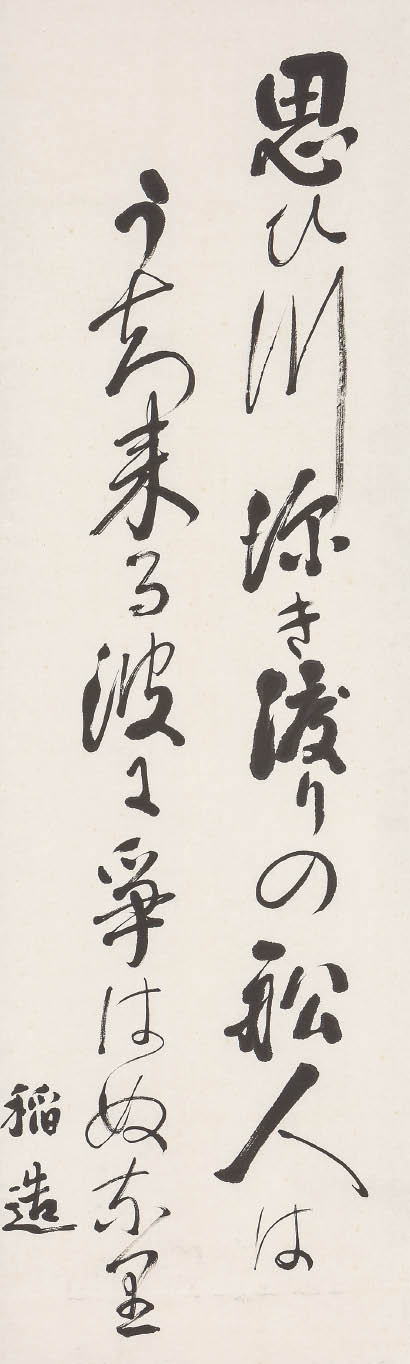 思ひ川深き渡りの舩人は
うち来る波に争はぬなり
稲造